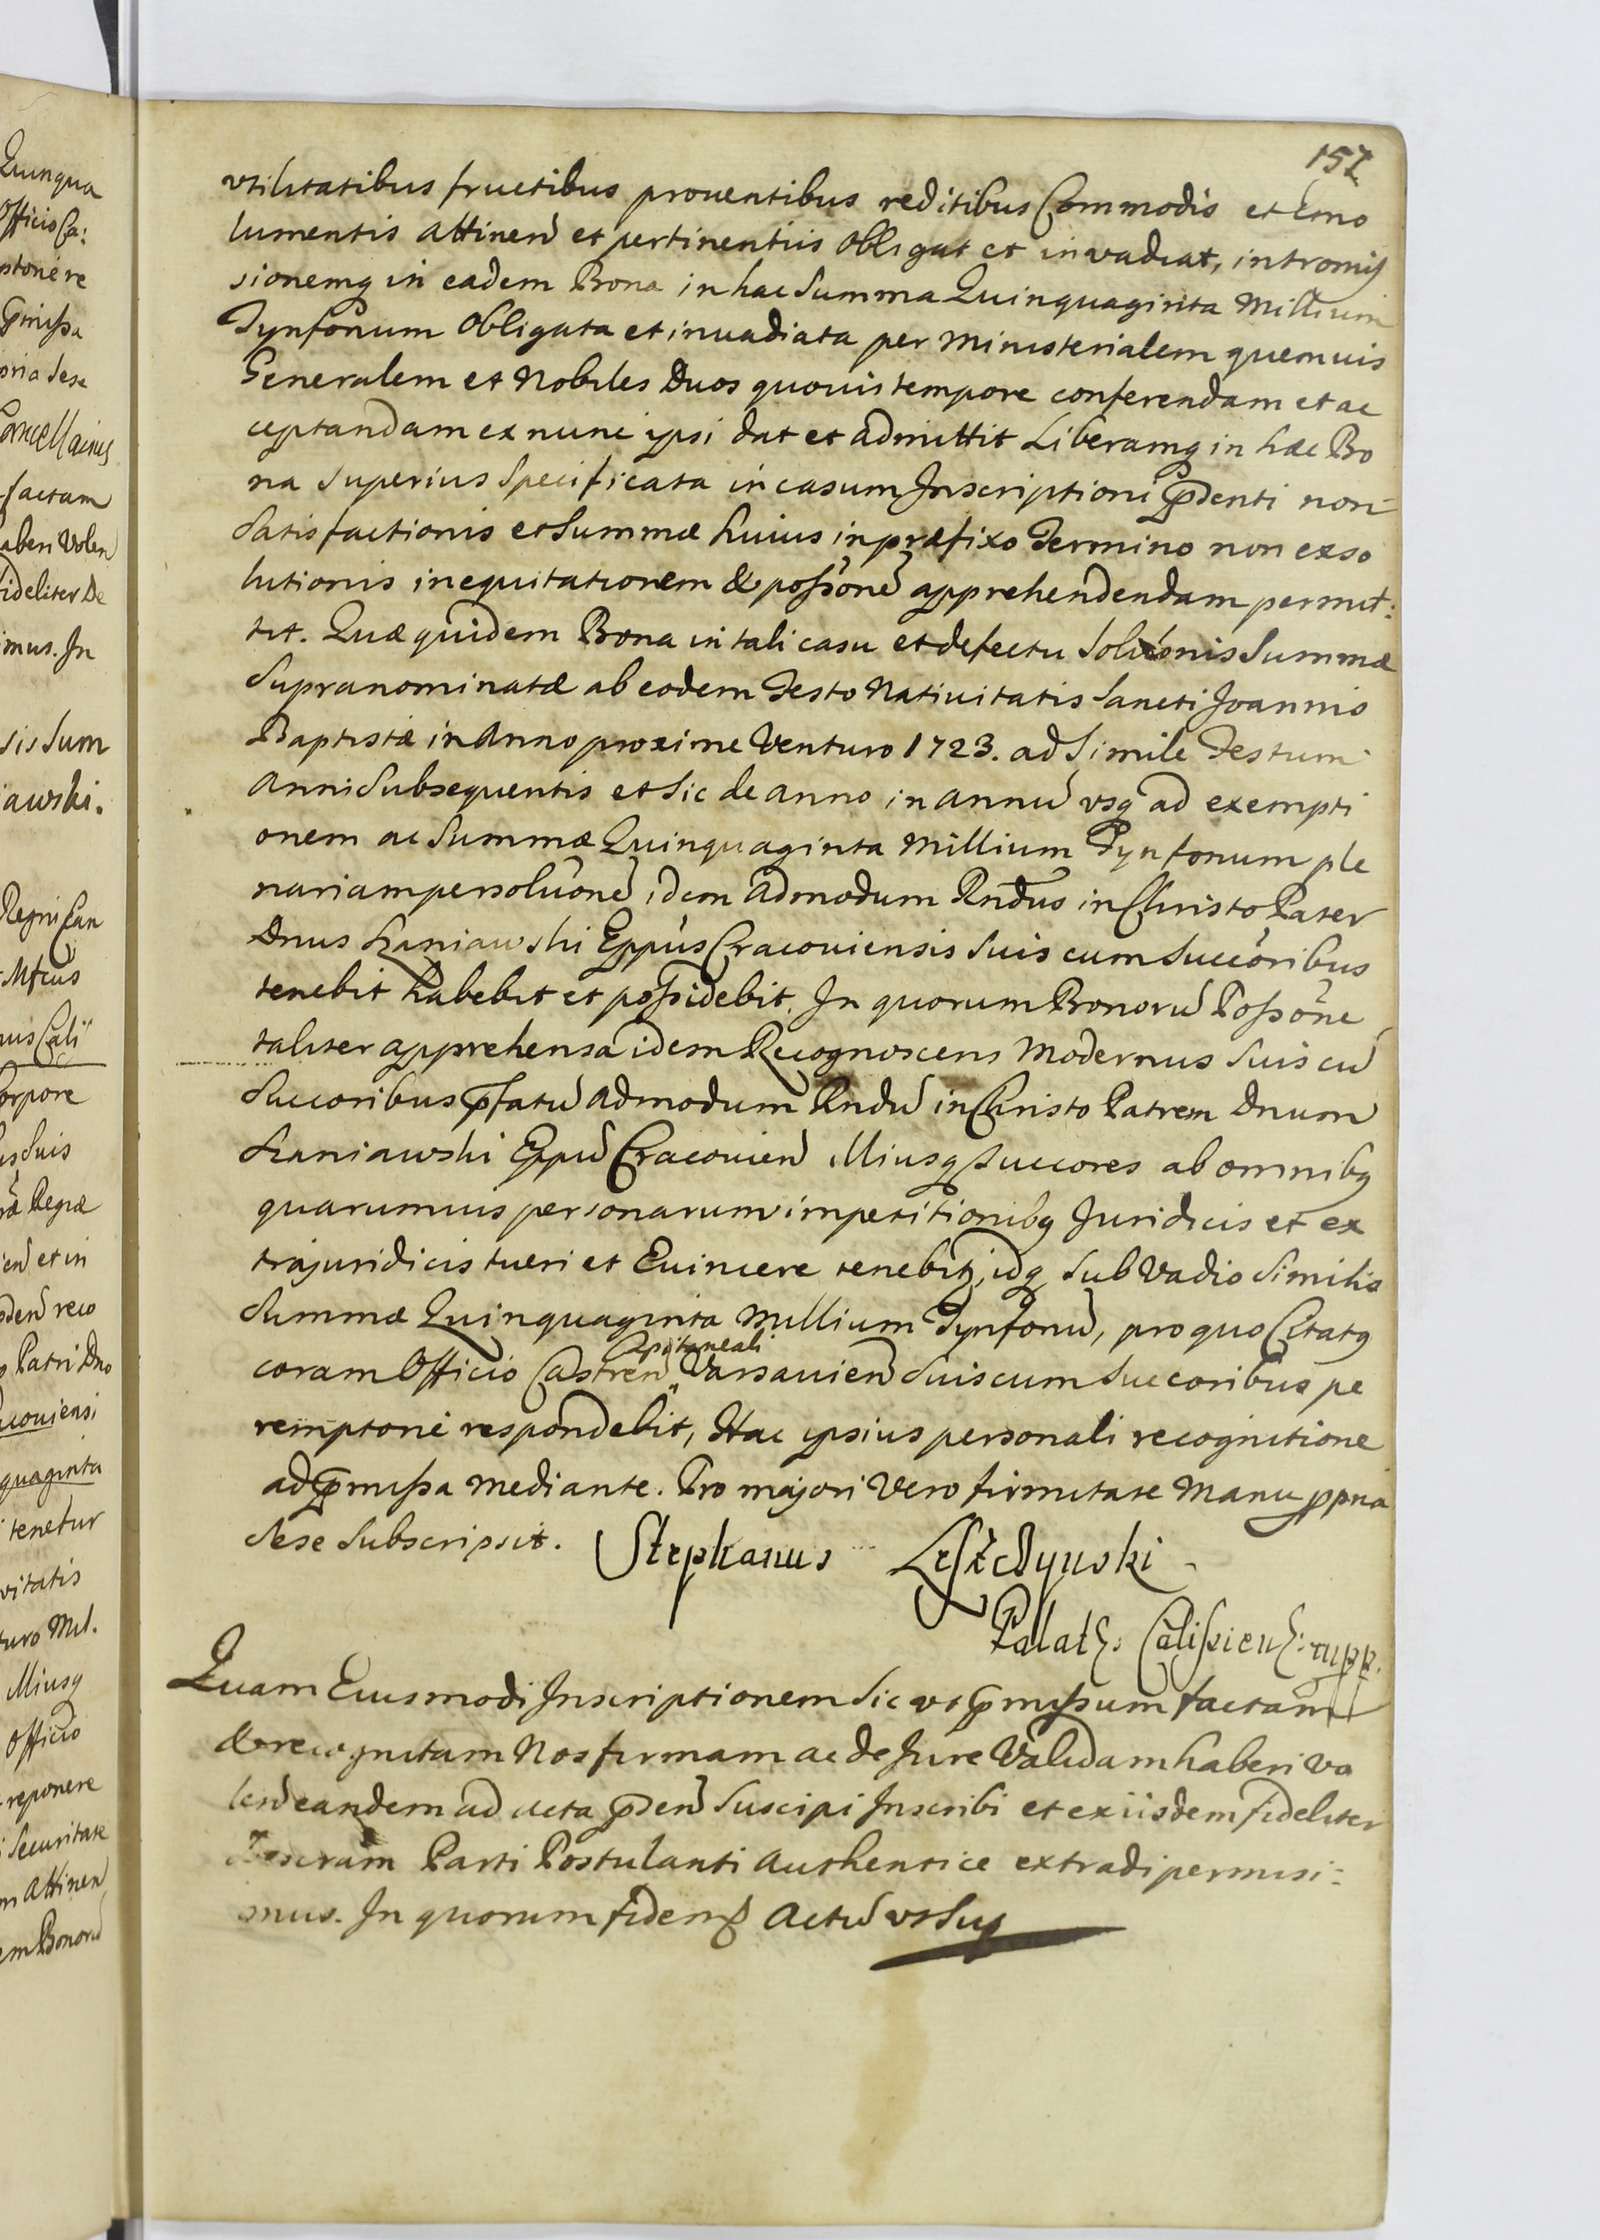 157
vtilitatibus fructibus prouentibus reditibus Commodis et Emo
lumentis Attinen et pertinentiis Obligat et invadiat, intromis
sionemq in eadem Bona in hac Summa Quinquaginta Millium
Tynfonum Obligata et inuadiata per Ministerialem quemuis
Generalem et Nobiles Duos quouis tempore conferendam et ac
ceptandam ex nunc ipsi dat et admittit Liberamq in hæc Bo
na Superius Specificata in casum Inscriptioni pñdenti non
Satisfactionis et Summæ huius in præfixo Termino non exso
lutionis inequitationem & possõne apprehendendam permit:
tit. Quæ quidem Bona in tali casu et defectu Soluõnis Summæ
Supranominatæ ab eodem Festo Natiuitatis Sancti Joannis
Baptistæ in Anno proxime Venturo 1723. ad Simile Festum
Anni Subsequentis et Sic de anno in annũ vsq ad exempti
onem ac Summæ Quinquaginta Millium Tynfonum ple
nariam persoluõne idem Admodum Rndus in Christo Pater
Dnus Szaniawski Eppus Cracouiensis Suis cum Succoribus
tenebit habebit et possidebit. In quorum Bonorũ Possõne
taliter apprehensa idem Recognoscens Modernus Suis cũ
Succoribus pfatũ Admodum Rndũ in Christo Patrem Dnum
Szaniawski Eppũ Cracouien Illiusq Succores ab omnibq
quarumuis personarum impetitionibq Juridicis et ex
trajuridicis tueri et Euincere tenebitq, idq Sub Vadio Similis
Summæ Quinquaginta Millium Tynfonũ, pro quo Citatq
Capitaneali
coram Officio Castren Varsauien Suis cum Succoribus pe
remptorie respondebit, Hac ipsius personali recognitione
ad pmissa mediante. Pro majori Vero firmitate Manu ppria
Sese Subscripsit. Stephanus Leszczynski
Palat: Calissiens: mpp.
Quam Eiusmodi Inscriptionem Sic vt pmissum factam
& recognitam Nos firmam ac de Jure Validam haberi vo
len eandem ad acta pñden Suscipi Inscribi et ex iisdem fideliter
Parti Postulanti Authentice extradi permisi:
mus. In quorum fidem Actũ vt Sup
Quinqua
Officio Ca:
ptorie re
pmissa
pria Sese
Cancellarius
factam
haberi Volen
fideliter De
imus. In
Sis Sum
iawski.
Regni Can
Mfcus
nus Cali
Corpore
Suis
Regiæ
et in
pden reco
Patri Dno
acouiensi
quaginta
tenetur
vitatis
turo Mil.
Illiusq
Officio
reponere
Securitate
Attinen
em Bonorũ